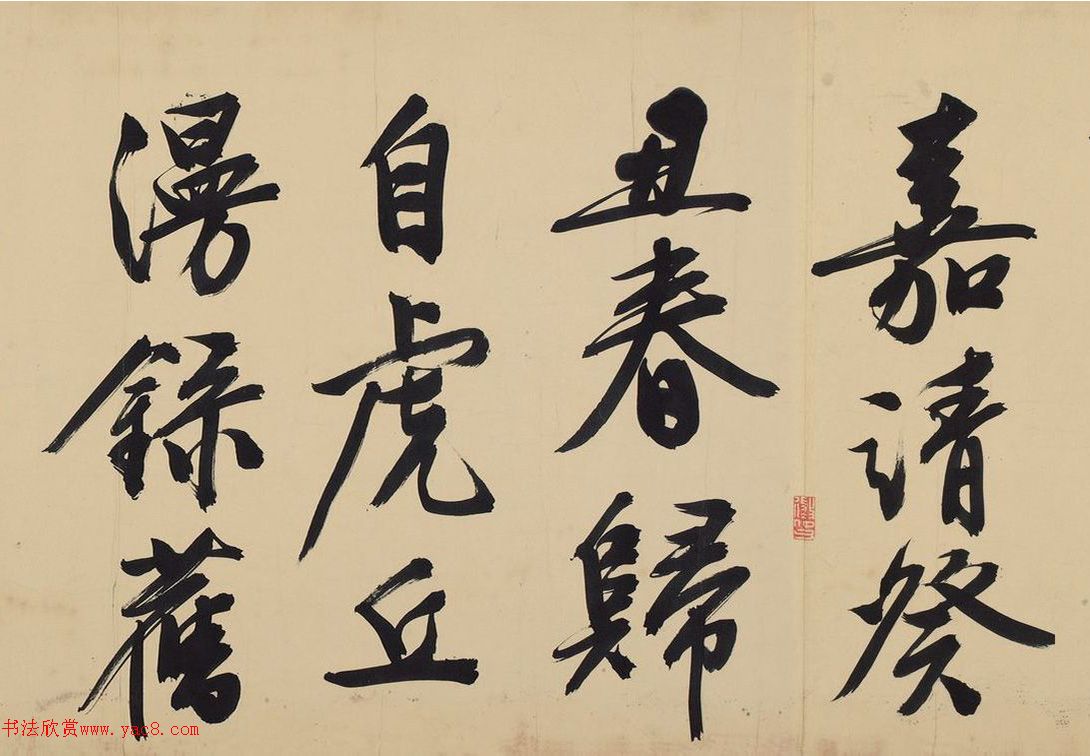 嘉靖癸
丑春歸
自虎丘
漫錄舊
书法欣赏www.yac8.com